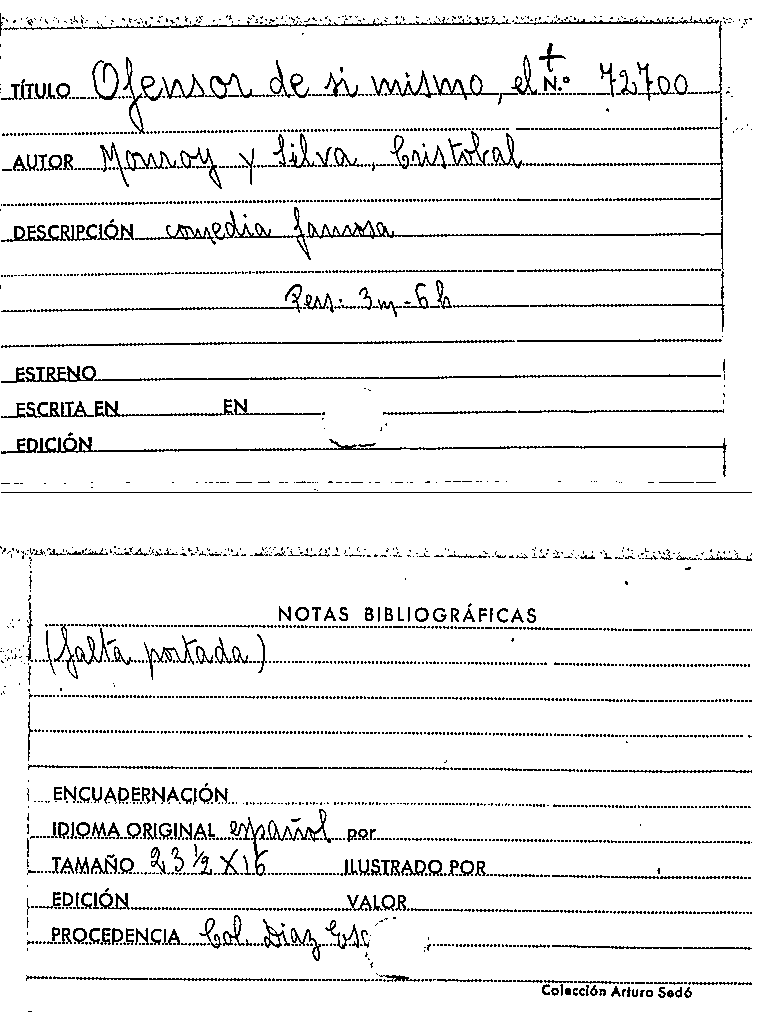 TÍTULO Ofensor de si mismo, el + N.º 72700
AUTOR Monroy y Silva, Cristobal
DESCRIPCIÓN comedia famosa
Pers: 3m-6h
ESTRENO
ESCRITA EN EN
EDICIÓN
NOTAS BIBLIOGRÁFICAS
(falta portada)
ENCUADERNACIÓN
IDIOMA ORIGINAL español por
TAMAÑO 23 ½ X 16 ILUSTRADO POR
EDICIÓN VALOR
PROCEDENCIA Col. Diaz Esc
Colección Arturo Sedó